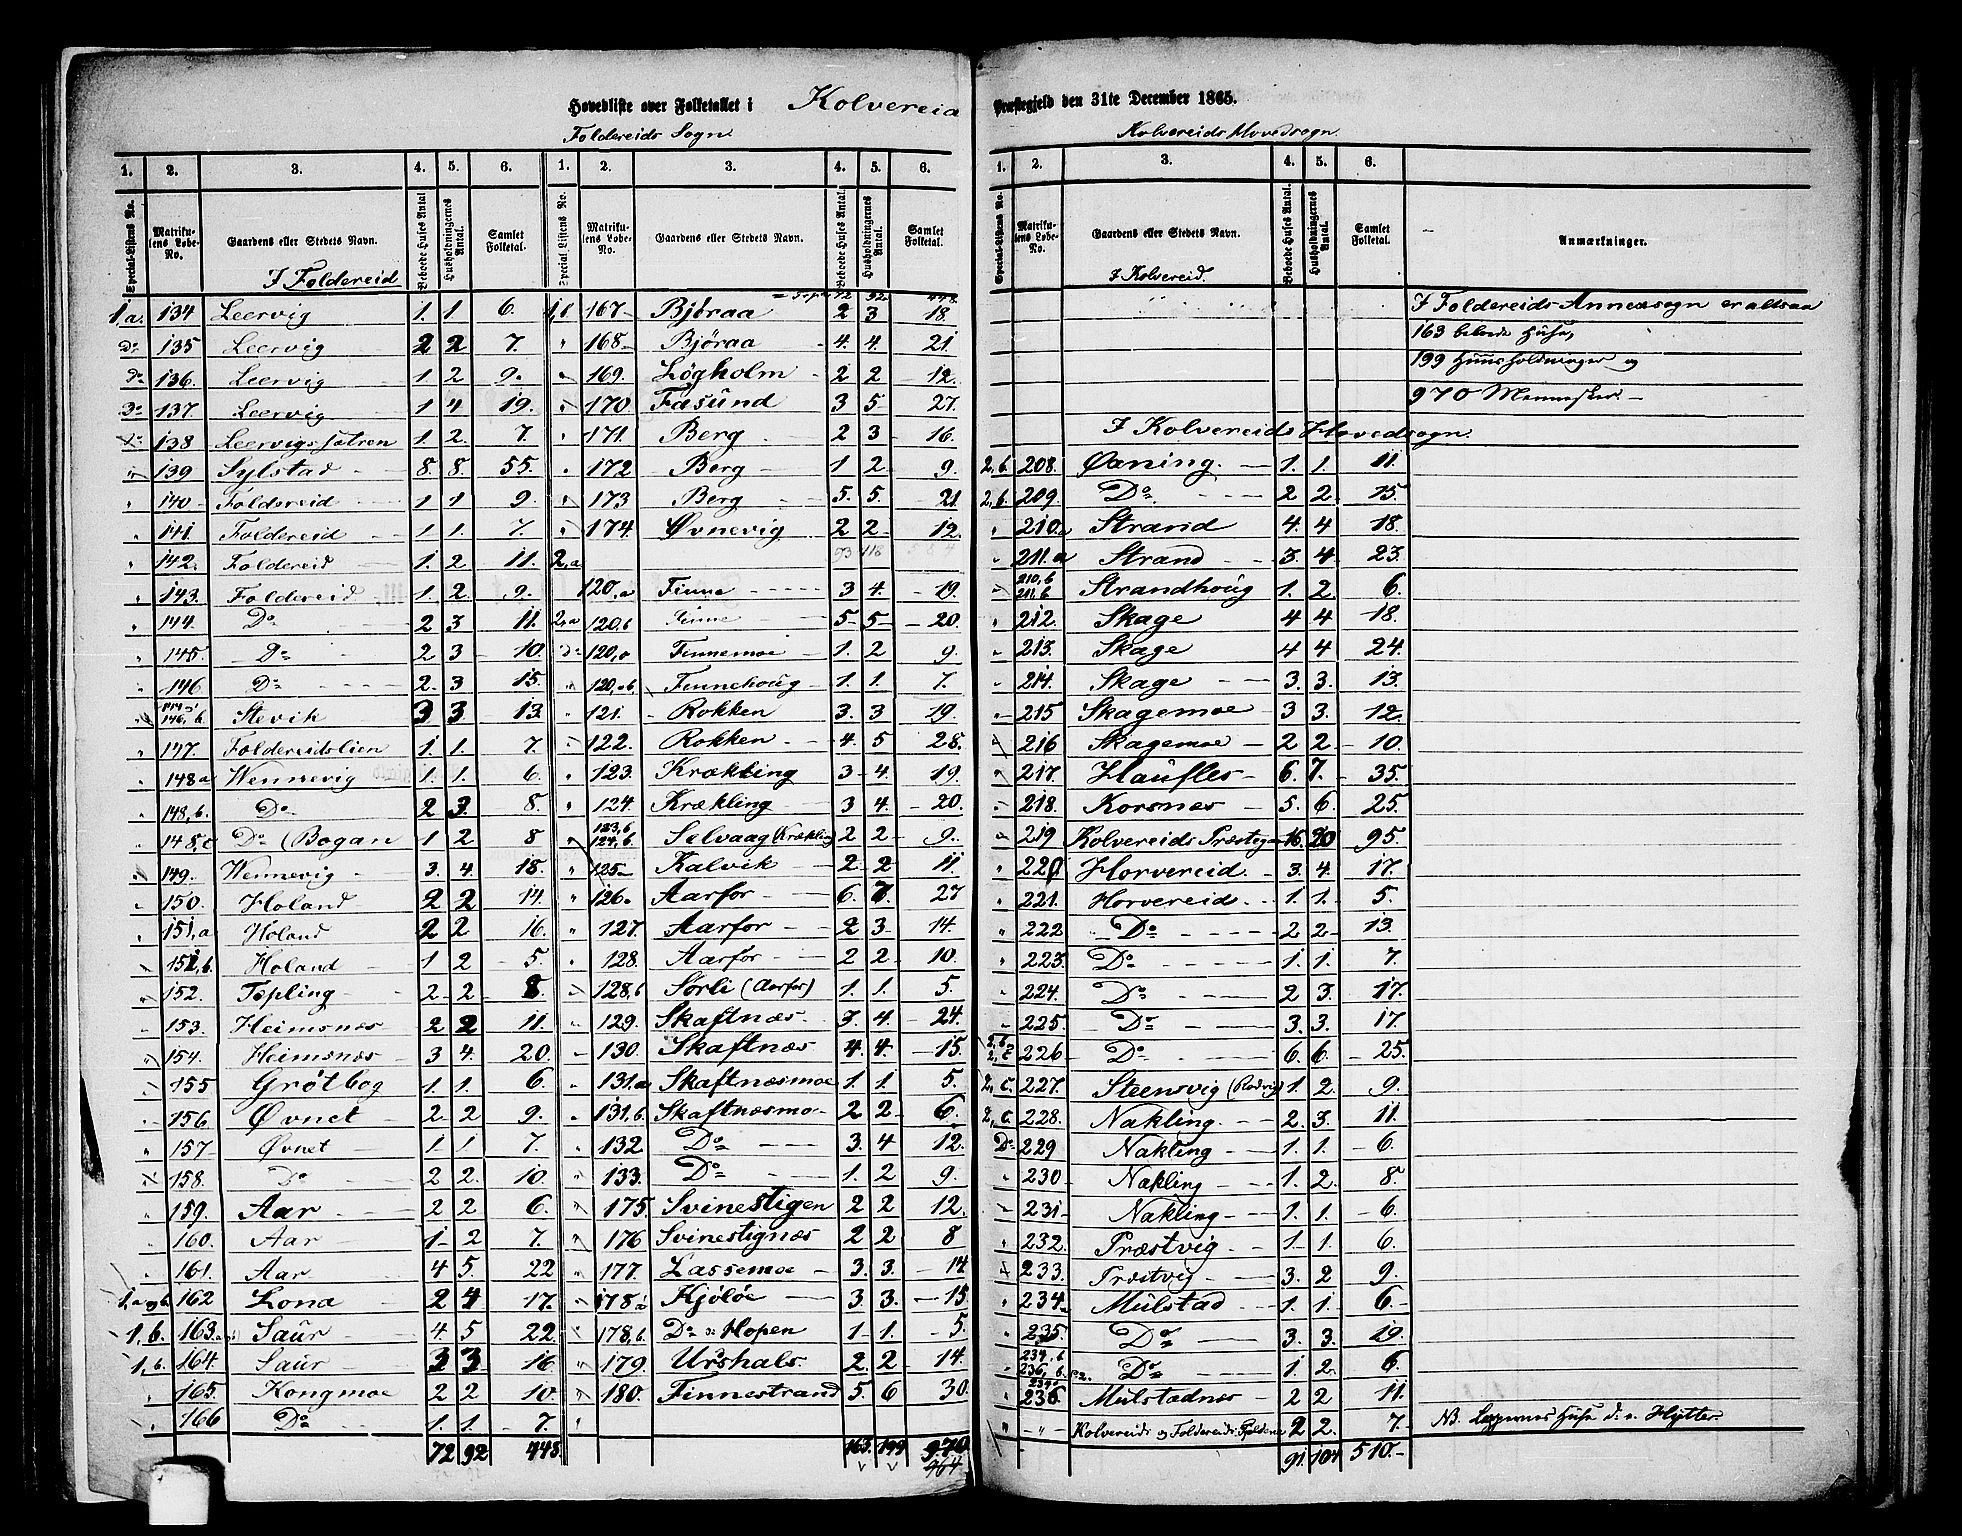 Hovedliste over Folketallet i Kolvereid Præstegjeld den 31te December 1865.
Foldereids Sogn
Kolvereids Hovedsogn
1. 2. 3. 4. 5. 6. 1. 2. 3. 4. 5. 6.
Special-Listens No. Matrikulens Løbe-No. Gaardens eller Stedets Navn. Beboede Huses Antal Husholdningernes Antal. Samlet Folketal. Special Listens No. Matrikulens Løbe-No. Gaardens eller Stedets Navn. Beboede Huses Antal. Husholdningernes Antal. Samlet Folketal.
I Foldereid
72 92 448.
1,a. 134 Leervig 1. 1. 6. 1,b 167 Bjøraa 2 3 18.
Do 135 Leervig 2 2 7. " 168 Bjøraa 4. 4. 21.
Do 136. Leervig 1 2 9. " 169. Løgholm 2 2 12.
Do 137. Leervig 1 4 19. " 170 Fasund 3 5 27.
Do 138 Leervigssætren 1. 2. 7. " 171. Berg 2 3 16.
" 139 Sylstad 8. 8. 55. " 172 Berg 1 2 9.
" 140 Foldereid 1 1 9. " 173 Berg 5. 5. 21
" 141. Foldereid 1. 1. 7. " 174. Øvnevig 2 2 12.
" 142. Foldereid 1. 2 11. 2,a 93 118 584
" 143. Foldereid 1. 2 9. 120,a Finne 3 4. 19.
" 144. Do 2 3 11. 2,a 120,b Finne 5 5 20.
" 145. Do 2 3 10. Do 120, Finnemoe 1. 2 9.
" 146 Do 2. 3 15. " 120,a b Finnehoug 1. 1. 7.
" 146,b. Stevik 3 3. 13. " 121. Rokken 3. 3 19.
" 147. Foldereidslien 1. 1. 7. " 122. Rokken 4. 5 28.
" 148a Wennevig 1. 1. 6. " 123. Krækling 3 4. 19.
" 148,b. Do 2 3. 8. " 124. Krækling 3 4. 20.
" 148,c Do (Bogan 1 2 8 " 123,b 124,b. Selvaag (Krækling) 2 2 9.
" 149. Wennevig 3. 4. 18. " 125 Kalvik 2 2 11.
" 150. Holand 2 2 14. " 126. Aarfor 6. 7. 27
" 151,a Holand 2 2 16. " 127. Aarfor 2 3 14.
" 151,b. Holand 1 2 5. " 128. Aarfor 2 2 10.
" 152. Tepling 2 2 8. " 128,b Sorli (Aarfor) 1. 1. 5.
" 153. Heimsnæs 2 2 11. " 129. Skaftnæs 3. 4. 24.
" 154. Heimsnæs 3 4. 20. " 130. Skaftnæs 4. 4. 15.
" 155 Grøtbog 1. 1. 6. " 131.a Skaftnæsmoe 1. 1. 5.
" 156 Øvnet 2 2 9. " 131,b. Skaftnæsmo 2 2 6.
" 157 Øvnet 1 1 7. " 132 Do 3. 4 12.
" 158. Do 2 2. 10. " 133. Do 1. 2 9.
" 159. Aar 2 2 6. " 175. Svinestigen 2 2 12.
" 160. Aar 1 2 7. " 176 Svinestignæs 2 2 8
" 161. Aar 4 5. 22 " 177. Lassemoe 3. 3. 14
1,a og b. 162 Lona 2 4 17. " 178a Kjøløe 3 3. 15.
1,b. 163. Saur 4. 5 22. " 178,b. Do Hopen 1 1. 5.
1,b. 164. Saur 3 3 16 " 179. Urshals. 2. 2 14.
" 165. Kongmoe 2 2 10. " 180. Finnestrand 5. 6 30.
" 166 Do 1. 1. 7. "
72 92 448. 163. 199 970
964
1. 2. 3. 4. 5. 6.
Special-Listens No. Matrikulens Løbe-No. Gaardens eller Stedets Navn. Beboede Huses Antal. Husholdningernes Antal. Samlet Folketal. Anmærkninger.
I Kolvereid.
I Foldereids Annexsogn er altsaa
163 beboede Huse,
199 Huusholdninger og
970 Mennesker
I Kolvereids Hovedsogn.
2,b. 208. Øvning. 1. 1. 11.
2,b. 209. Do 2 2. 15.
" 210.a Strand 4. 4 18.
" 211.a Strand 3. 4 23.
" 210,b 211,b Strandhoug 1. 2 6.
" 212. Skage 4 4 18.
" 213. Skage 4 4 24.
" 214. Skage 3. 3. 13.
" 215 Skagemoe 3 3. 12.
" 216 Skagemoe 2 2 10.
" 217. Haufles 6. 7. 35.
" 218. Korsnæs 5. 6. 25.
" 219 Kolvereids Præstegaard 16. 20 95.
" 220 Horvereid 3. 4. 17.
" 221. Horvereid 1. 1. 5.
" 222 Do 2 2 13.
" 223. Do 1. 1. 7
" 224. Do 2 3. 17.
" 225. Do 3. 3. 17
2,b 2,c 226 Do 6. 6. 25.
2,c. 227. Steensvig (Rodvig) 1. 2 9.
2,c. 228. Nakling 2. 3. 11.
Do 229 Nakling 1. 1. 6.
" 230 Nakling 1. 2. 8.
" 231 Nakling 1. 1. 6.
" 232. Præstvig 1. 1. 6.
" 233. Præstvig 3. 2 9.
" 234a Mulstad 1. 1. 6.
" 235. Do 3. 3. 19.
" 234,b 236,b. Do 1. 2 6.
" 236 Mulstadnæs 2 2 11.
" " Kolvereids og Foldereids Fjeldene 2 2. 7. NB. Lappernes Huse d. e. Hytter.
91. 104 510.